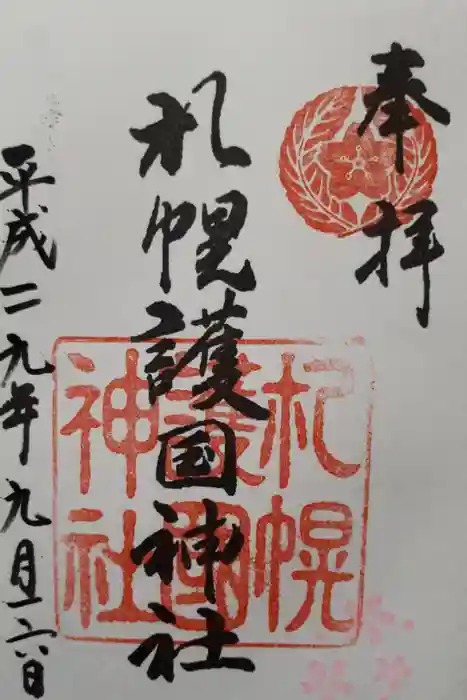 奉拝
札幌護国神社
札幌
護國
神社
平成二九年九月二六日